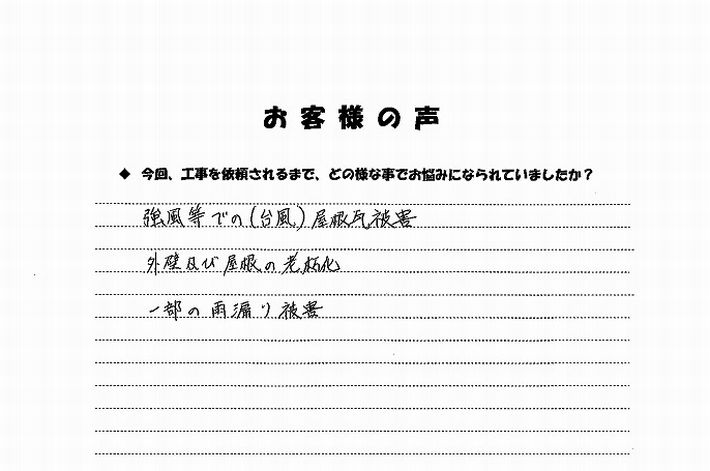 お客様の声
◆ 今回、工事を依頼されるまで、どの様な事でお悩みになられていましたか？
強風等での(台風)屋根瓦被害
外壁及び屋根の老朽化
一部の雨漏り被害